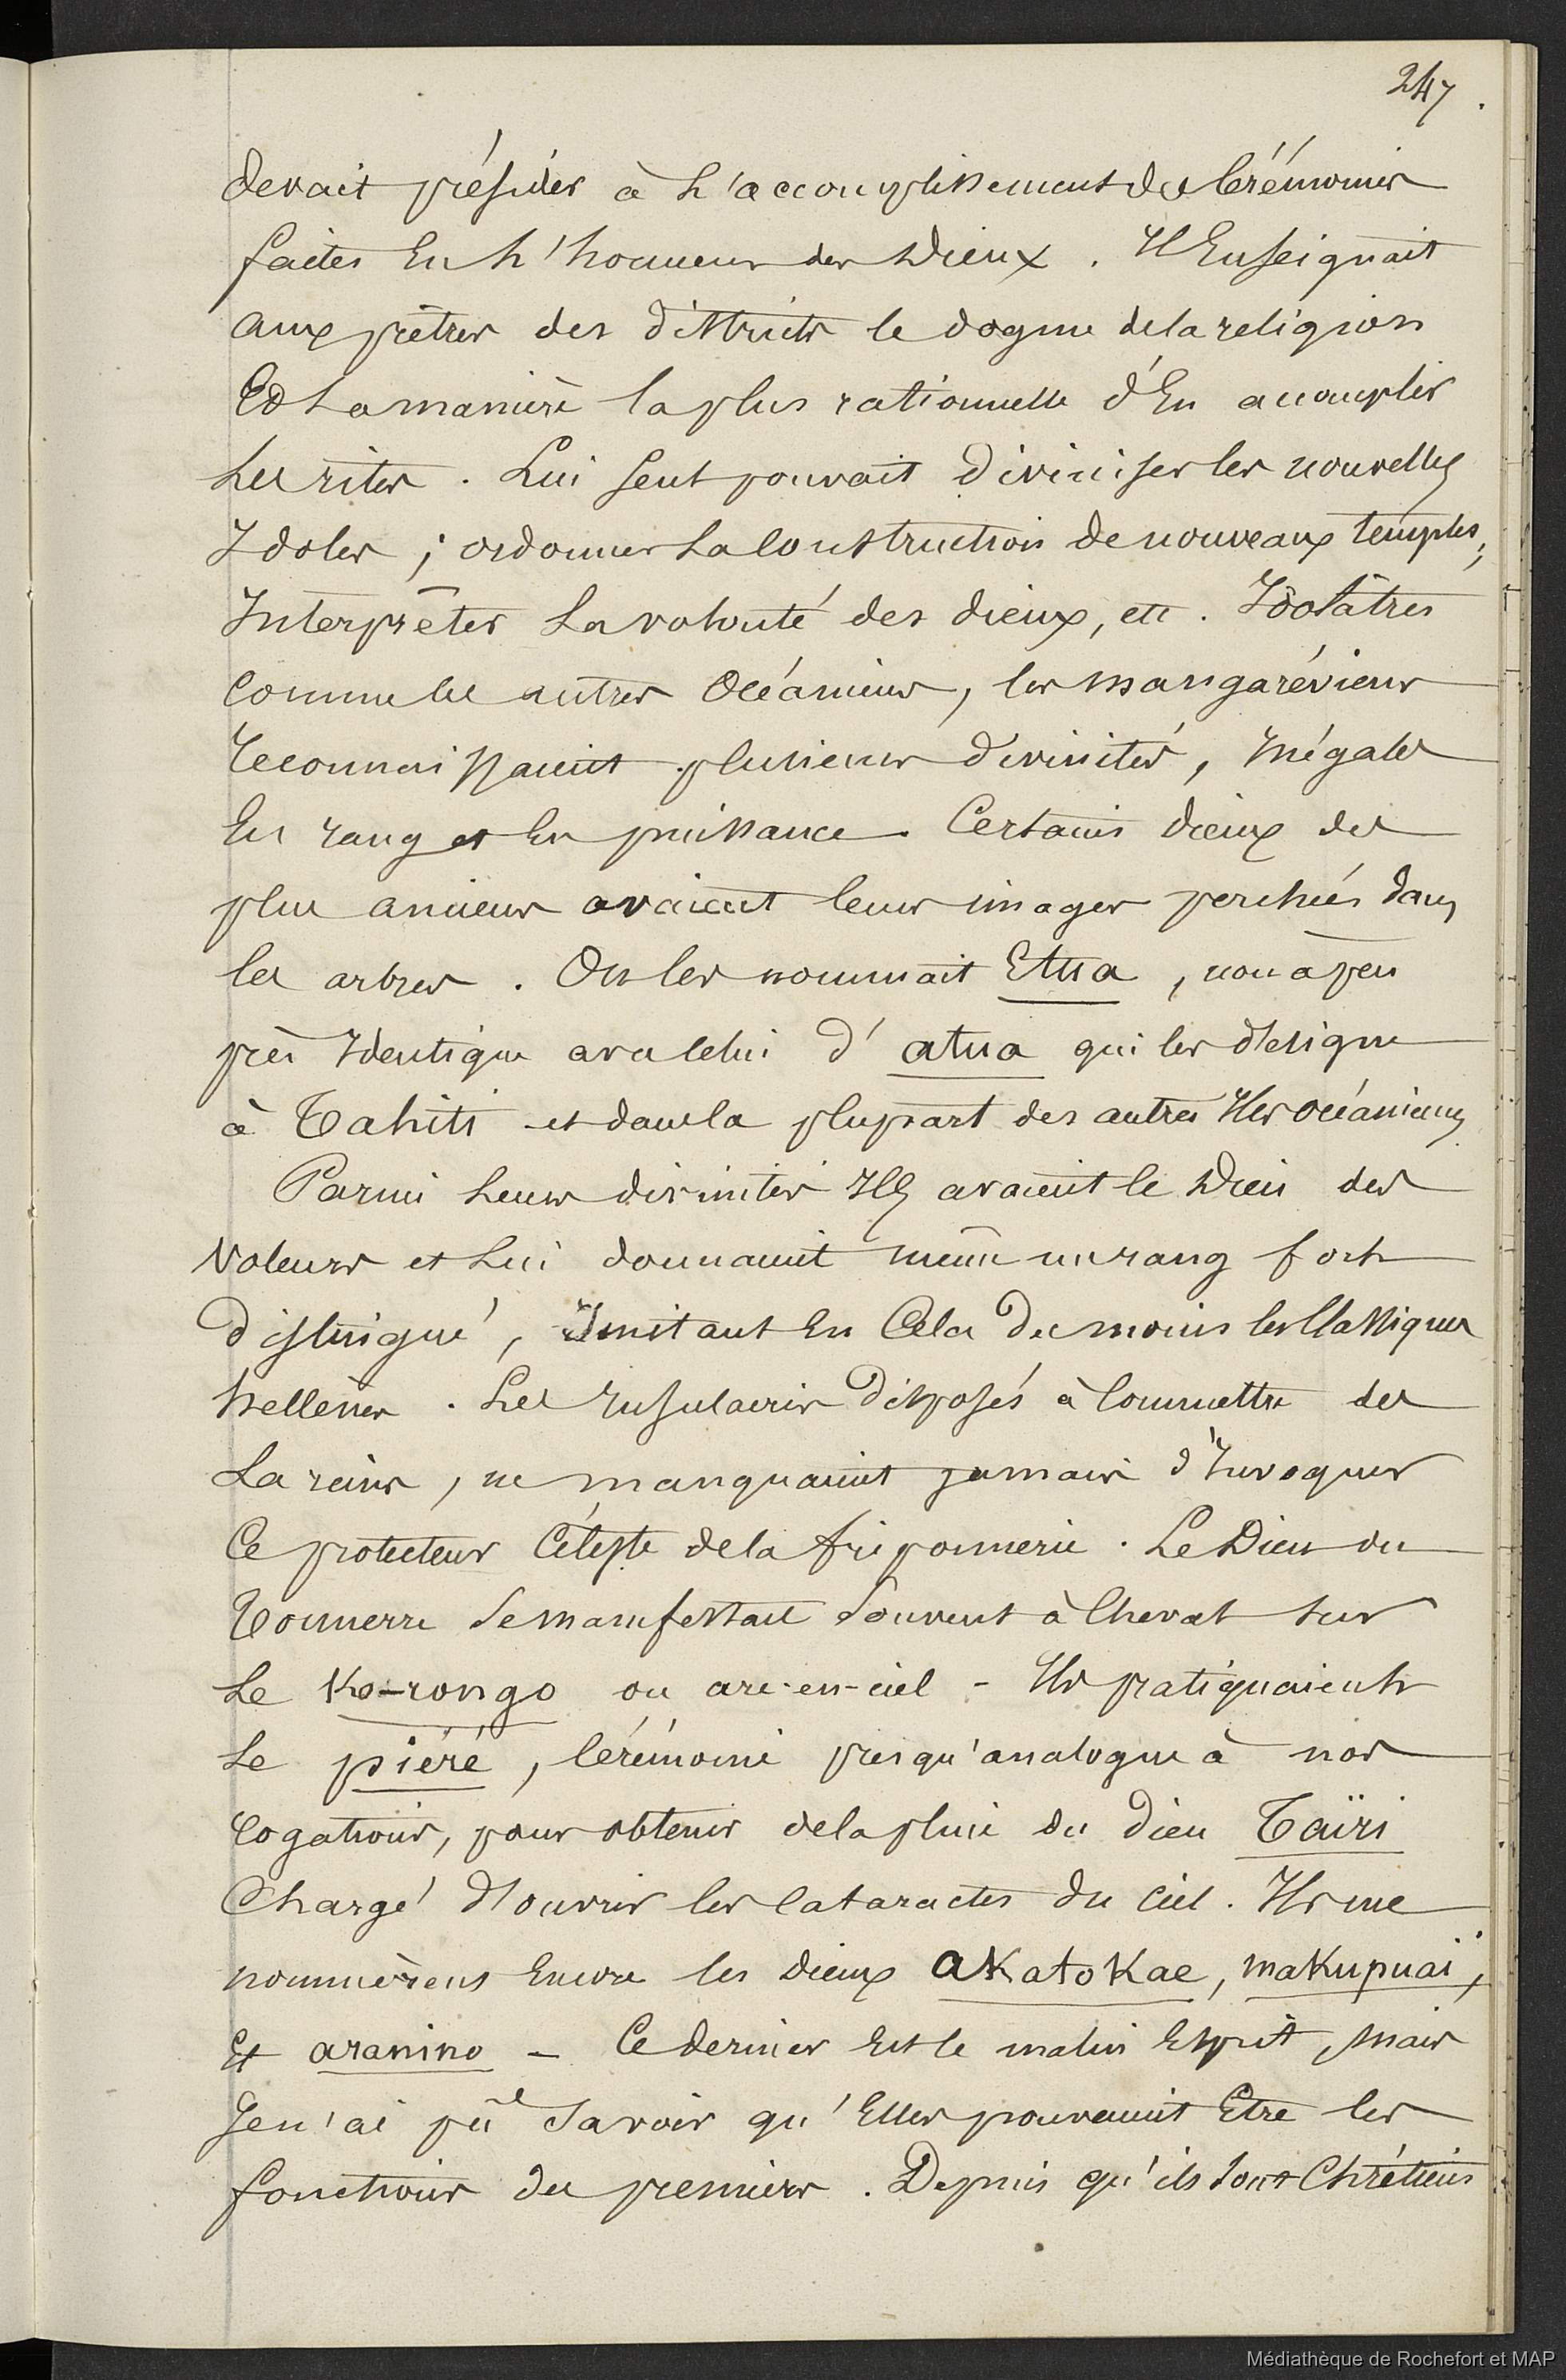 247.
devait présider à l'accomplissement des Cérémonies
faites En l'honneur des Dieux. Il Enseignait
aux prêtres des districts le dogme de la religion
Et La manière la plus rationnelle d'En accomplir
Les rites. Lui seul pouvait diviniser les nouvelles
Idoles ; ordonner La Construction de nouveaux temples ;
Interprêter La volonté des dieux, etc. Idolâtres
comme les autres Océaniens, les mangaréviens
reconnaissaient plusieurs divinités, Inégales
En rang et En puissance. Certains dieux des
plus anciens avaient leurs images perchées dans
les arbres. On les nommait Etua, nom à peu
près Identique avec Celui d'atua qui les désigne
à Tahiti et dans la plupart des autres Iles océaniennes
Parmi Leurs divinités Ils avaient le Dieu des
Voleurs et Lui donnaient même un rang fort
distingué, Imitant En Cela du moins les Classiques
hellènes. Les Insulaires disposés à Commettre des
Larcins, ne manquaient jamais d'Invoquer
Ce protecteur Céleste de la friponnerie. Le Dieu du
Tonnerre Se manifestait Souvent à Cheval sur
Le Ko-rongo ou arc-en-ciel - Ils pratiquaient
Le piéré, Cérémonie presqu'analogue à nos
rogations, pour obtenir de la pluie du dieu Taïri
Chargé d'ouvrir les Cataractes du Ciel. Ils me
nommèrent Encore les dieux akatokae, makupuaï,
Et aranino - Ce dernier Est le malin Esprit, mais
Je n'ai pû Savoir qu'Elles pouvaient Etre les
fonctions des premiers. Depuis qu'ils Sont Chrétiens
Médiathèque de Rochefort et MAP